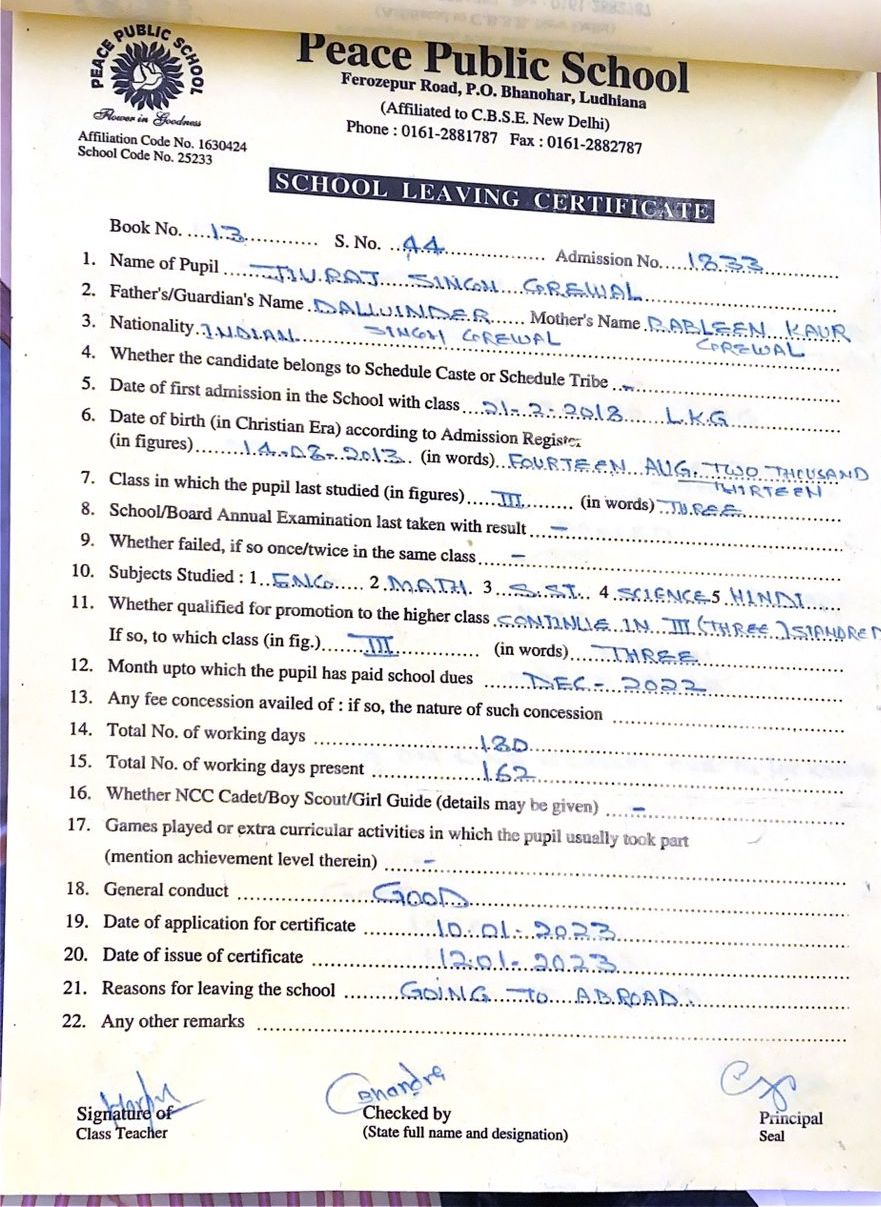 PEACE PUBLIC SCHOOL
Flower in Goodness
Affiliation Code No. 1630424
School Code No. 25233
Peace Public School
Ferozepur Road, P.O. Bhanohar, Ludhiana
(Affiliated to C.B.S.E. New Delhi)
Phone : 0161-2881787 Fax : 0161-2882787
SCHOOL LEAVING CERTIFICATE
Book No. 13 S. No. 44 Admission No. 1833
1. Name of Pupil JIVRAJ SINGH GREWAL
2. Father's/Guardian's Name DALWINDER Mother's Name RABLEEN KAUR
3. Nationality INDIAN SINGH GREWAL GREWAL
4. Whether the candidate belongs to Schedule Caste or Schedule Tribe -
5. Date of first admission in the School with class 21-2-2018 L.K.G
6. Date of birth (in Christian Era) according to Admission Register
(in figures) 14-08-2013 (in words) FOURTEEN AUG. TWO THOUSAND
THIRTEEN
7. Class in which the pupil last studied (in figures) III (in words) THREE
8. School/Board Annual Examination last taken with result -
9. Whether failed, if so once/twice in the same class -
10. Subjects Studied : 1 ENG. 2 MATH. 3 S.ST. 4 SCIENCE 5 HINDI
11. Whether qualified for promotion to the higher class CONTINUE IN III (THREE) STANDRED
If so, to which class (in fig.) III (in words) THREE
12. Month upto which the pupil has paid school dues DEC - 2022
13. Any fee concession availed of : if so, the nature of such concession
14. Total No. of working days 180
15. Total No. of working days present 162
16. Whether NCC Cadet/Boy Scout/Girl Guide (details may be given) -
17. Games played or extra curricular activities in which the pupil usually took part
(mention achievement level therein) -
18. General conduct GOOD
19. Date of application for certificate 10-01-2023
20. Date of issue of certificate 12-01-2023
21. Reasons for leaving the school GOING TO ABROAD.
22. Any other remarks
Bhandre
Signature of Checked by Principal
Class Teacher (State full name and designation) Seal